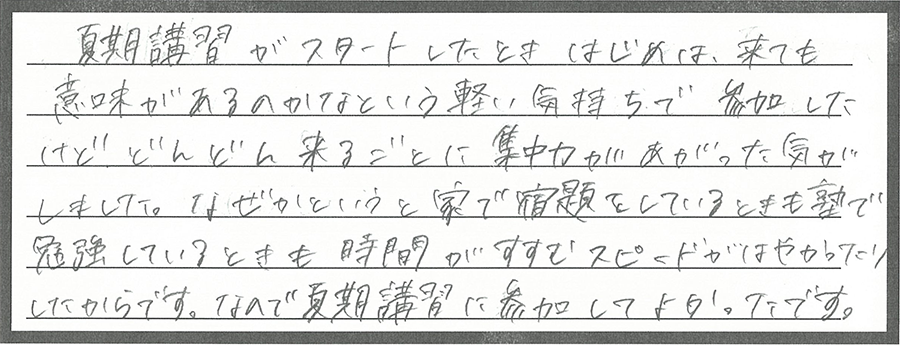 夏期講習がスタートしたときはじめは、来ても
意味があるのかなという軽い気持ちで参加した
けどどんどん来るごとに集中力があがった気が
しました。なぜかというと家で宿題をしているときも塾で
勉強しているときも時間がすすむスピードがはやかったり
したからです。なので夏期講習に参加してよかったです。